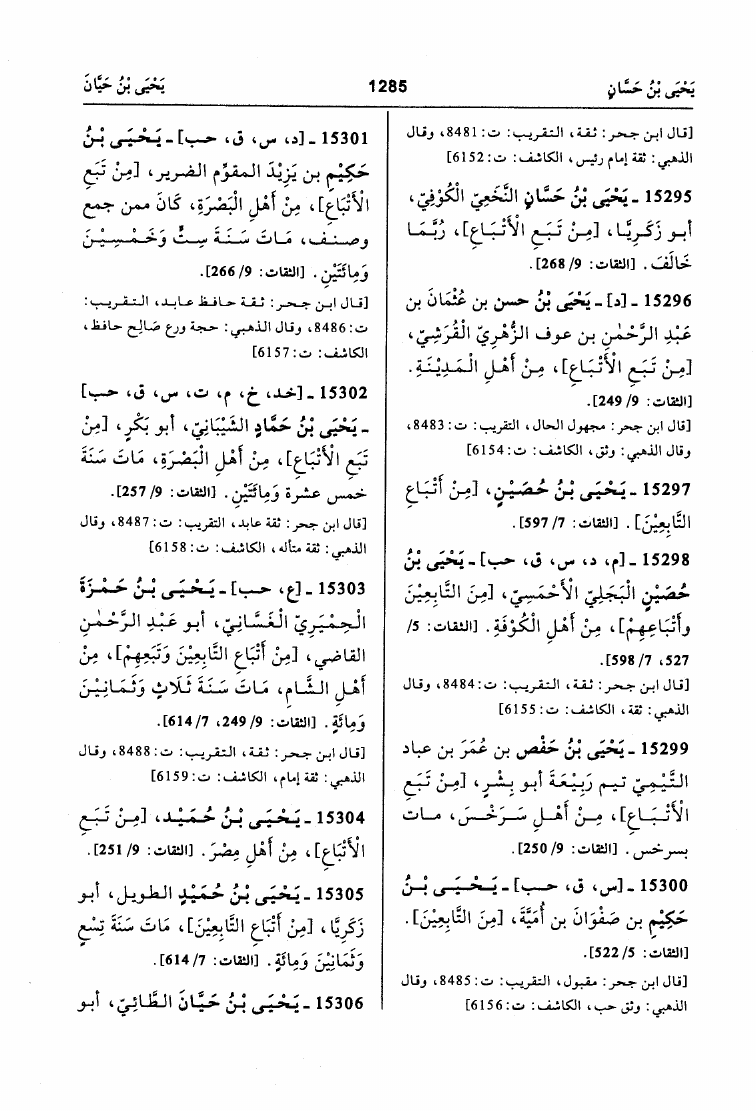 يَحْيَى بْنُ حَسَّانٍ 1285 يَحْيَى بْنُ حَيَّانَ
[قال ابن حجر: ثقة، التقريب: ت: 8481، وقال
الذهبي: ثقة إمام رئيس، الكاشف: ت: 6152]
15295 ـ يَحْيَى بْنُ حَسَّانٍ النَّخَعِيّ الْكُوْفِيّ،
أبو زَكَرِيَّا، [مِنْ تَبَعِ الأَتْبَاعِ]، رُبَّمَا
خَالَفَ. [الثقات: 9/ 268].
15296 ـ [د] ـ يَحْيَى بْنُ حسن بن عُثْمَانَ بن
عَبْدِ الرَّحْمٰنِ بن عوف الزُّهْرِيّ الْقُرَشِيّ،
[مِنْ تَبَعِ الأَتْبَاعِ]، مِنْ أَهْلِ الْمَدِيْنَةِ.
[الثقات: 9/ 249].
[قال ابن حجر: مجهول الحال، التقريب: ت: 8483،
وقال الذهبي: وثق، الكاشف: ت: 6154]
15297 ـ يَحْيَى بْنُ حُصَيْنٍ، [مِنْ أَتْبَاعِ
التَّابِعِيْنَ]. [الثقات: 7/ 597].
15298 ـ [م، د، س، ق، حب] ـ يَحْيَى بْنُ
حُصَيْنٍ الْبَجَلِيّ الأَحْمَسِيّ، [مِنَ التَّابِعِيْنَ
وأَتْبَاعِهِمْ]، مِنْ أَهْلِ الْكُوْفَةِ. [الثقات: 5/
527، 7/ 598].
[قال ابن حجر: ثقة، التقريب: ت: 8484، وقال
الذهبي: ثقة، الكاشف: ت: 6155]
15299 ـ يَحْيَى بْنُ حَفْصِ بن عُمَرَ بن عباد
التَّيْمِيّ تيم رَبِيْعَةَ أبو بِشْرٍ، [مِنْ تَبَعِ
الأَتْبَاعِ]، مِنْ أَهْلِ سَرَخْسَ، مات
بسرخس. [الثقات: 9/ 250].
15300 ـ [س، ق، حب] ـ يَحْيَى بْنُ
حَكِيْمِ بن صَفْوَانَ بن أُمَيَّةَ، [مِنَ التَّابِعِيْنَ].
[الثقات: 5/ 522].
[قال ابن حجر: مقبول، التقريب: ت: 8485، وقال
الذهبي: وثق حب، الكاشف: ت: 6156]
15301 ـ [د، س، ق، حب] ـ يَحْيَى بْنُ
حَكِيْمِ بن يَزِيْدَ المقوّم الضرير، [مِنْ تَبَعِ
الأَتْبَاعِ]، مِنْ أَهْلِ الْبَصْرَةِ، كَانَ ممن جمع
وصنف، مَاتَ سَنَةَ سِتٍّ وَخَمْسِيْنَ
وَمِائَتَيْنِ. [الثقات: 9/ 266].
[قال ابن حجر: ثقة حافظ عابد، التقريب:
ت: 8486، وقال الذهبي: حجة ورع صالح حافظ،
الكاشف: ت: 6157]
15302 ـ [خد، خ، م، ت، س، ق، حب]
ـ يَحْيَى بْنُ حَمَّادٍ الشَّيْبَانِيّ، أبو بَكْرٍ، [مِنْ
تَبَعِ الأَتْبَاعِ]، مِنْ أَهْلِ الْبَصْرَةِ، مَاتَ سَنَةَ
خمس عشرة وَمِائَتَيْنِ. [الثقات: 9/ 257].
[قال ابن حجر: ثقة عابد، التقريب: ت: 8487، وقال
الذهبي: ثقة متأله، الكاشف: ت: 6158]
15303 ـ [ع، حب] ـ يَحْيَى بْنُ حَمْزَةَ
الْحِمْيَرِيّ الْغَسَّانِيّ، أبو عَبْدِ الرَّحْمٰنِ
القاضي، [مِنْ أَتْبَاعِ التَّابِعِيْنَ وَتَبَعِهِمْ]، مِنْ
أَهْلِ الشَّامِ، مَاتَ سَنَةَ ثَلَاثٍ وَثَمَانِيْنَ
وَمِائَةٍ. [الثقات: 9/ 249، 7/ 614].
[قال ابن حجر: ثقة، التقريب: ت: 8488، وقال
الذهبي: ثقة إمام، الكاشف: ت: 6159]
15304 ـ يَحْيَى بْنُ حُمَيْدٍ، [مِنْ تَبَعِ
الأَتْبَاعِ]، مِنْ أَهْلِ مِصْرَ. [الثقات: 9/ 251].
15305 ـ يَحْيَى بْنُ حُمَيْدٍ الطويل، أبو
زَكَرِيَّا، [مِنْ أَتْبَاعِ التَّابِعِيْنَ]، مَاتَ سَنَةَ تِسْعٍ
وَثَمَانِيْنَ وَمِائَةٍ. [الثقات: 7/ 614].
15306 ـ يَحْيَى بْنُ حَيَّانَ الطَّائِيّ، أبو